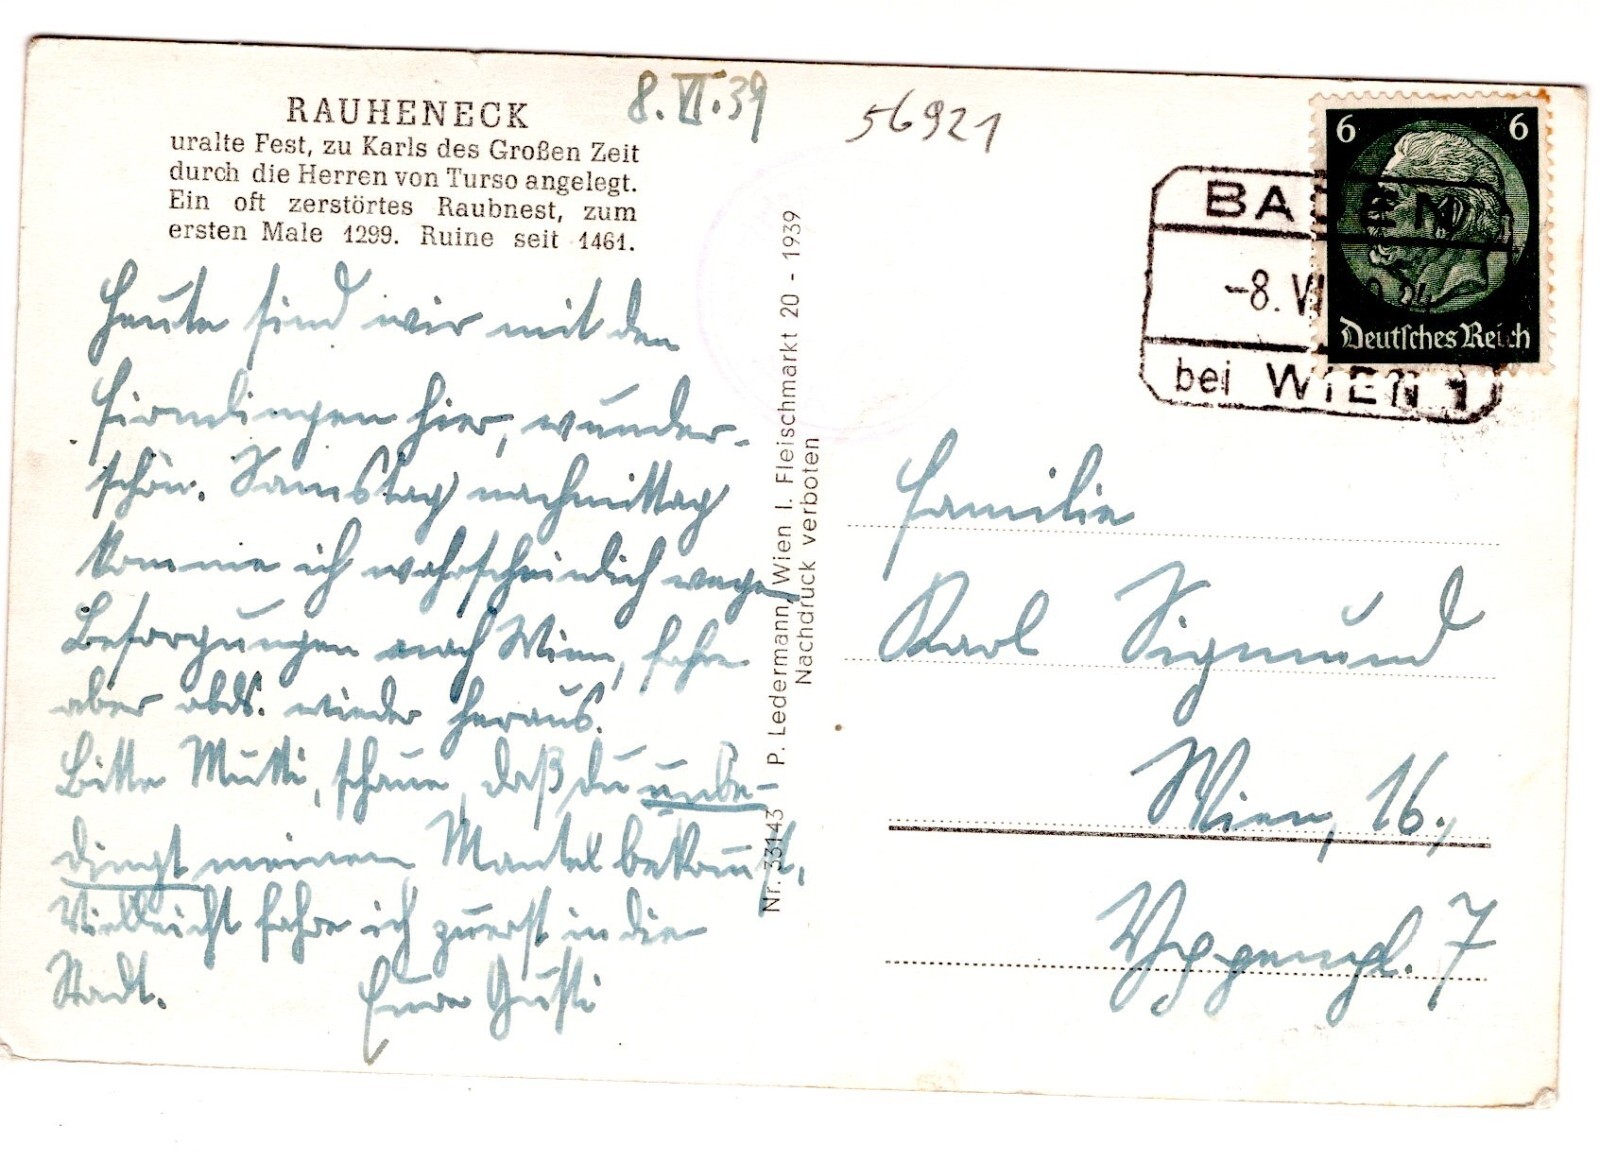 RAUHENECK
uralte Fest, zu Karls des Großen Zeit
durch die Herren von Turso angelegt.
Ein oft zerstörtes Raubnest, zum
ersten Male 1299. Ruine seit 1461.
8.VI.39
56921
Heute sind wir mit den
Firmlingen hier, wunder-
schön. Samstag nachmittag
komme ich wahrscheinlich wegen
Besorgungen nach Wien, fahre
aber abds. wieder heraus.
Bitte Mutti, schaue, daß du unbe-
dingt meinen Mantel bekommst.
Vielleicht fahre ich zuerst in die
Stadt. Eure Gusti
Nr. 33143 P. Ledermann, Wien I. Fleischmarkt 20 - 1939
Nachdruck verboten
6 6
Deutsches Reich
BADEN
-8. VI
bei WIEN 1
Familie
Karl Sigmund
Wien, 16.,
Yppenpl. 7